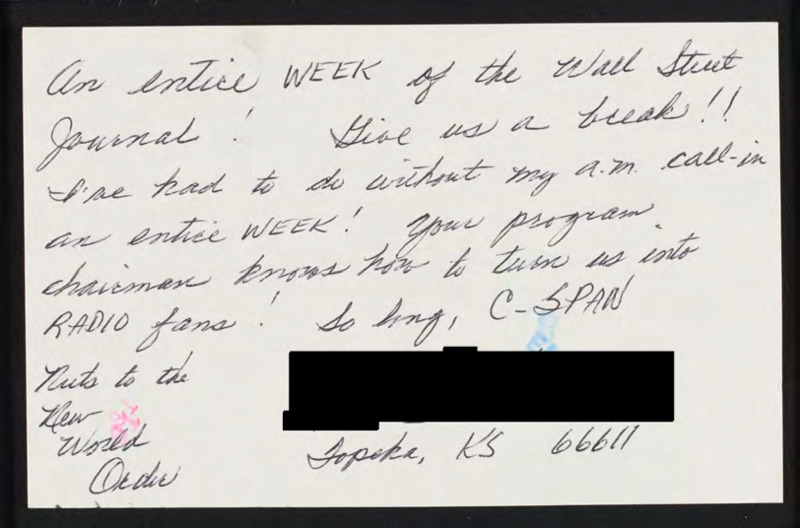 An entire WEEK of the Wall Street
Journal! Give us a break!!
I've had to do without my a.m. call-in
an entire WEEK! Your program
chairman knows how to turn us into
RADIO fans! So long, C-SPAN
Nuts to the
New
World
Order
Topeka, KS 66611